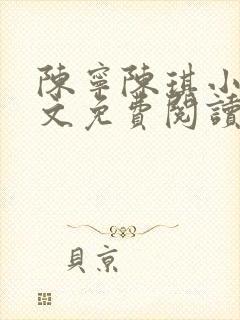 陳寧陳琪小
文免費閱讀
貝京